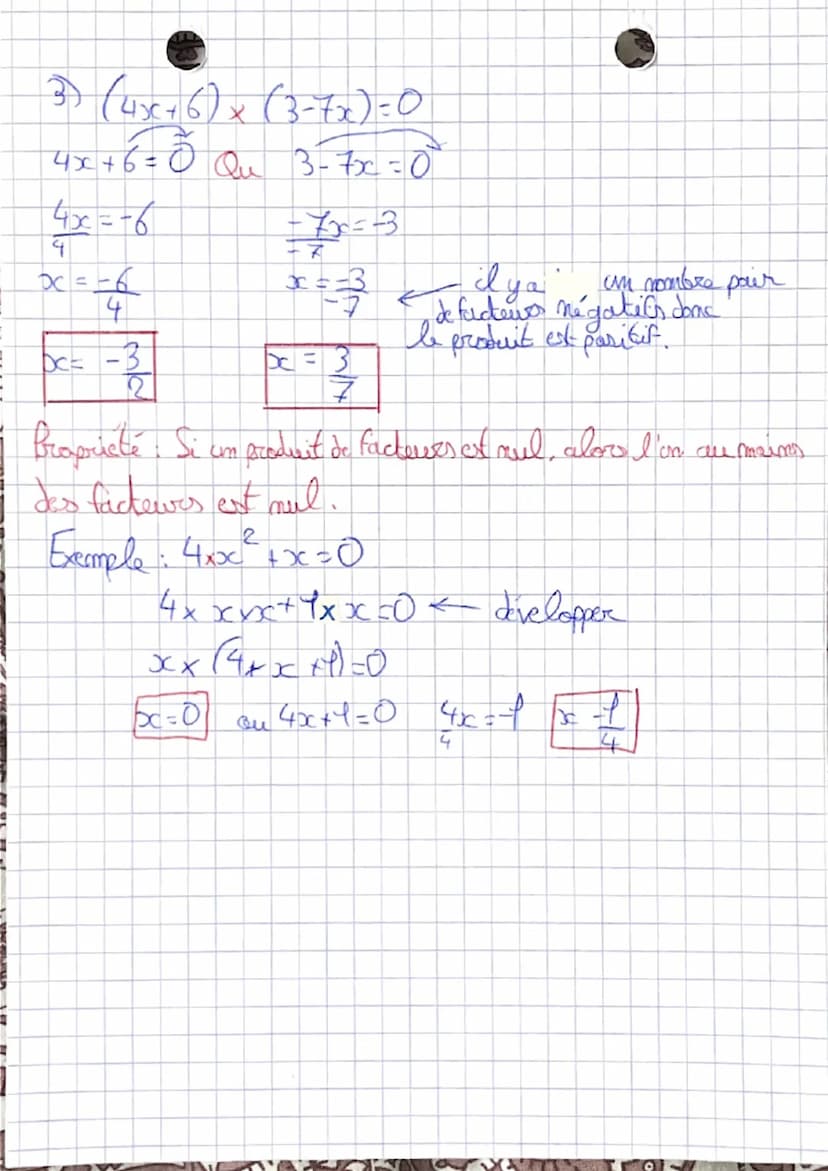 3) (4x+6) × (3-7x)=0
4x+6=0 Ou 3-7x=0
4x/4=-6 -7x/-7=-3
x=-6/4 x=-3/-7 ← il y a un nombre pair
de facteurs négatifs donc
le produit est positif.
x= -3/2 x = 3/7
Propriété : Si un produit de facteurs est nul, alors l'un au moins
des facteurs est nul.
Exemple : 4×x²+x=0
4× x×x+1×x=0 ← développer
x× (4×x+1)=0
x=0 ou 4x+1=0 4x/4=-1 x -1/4